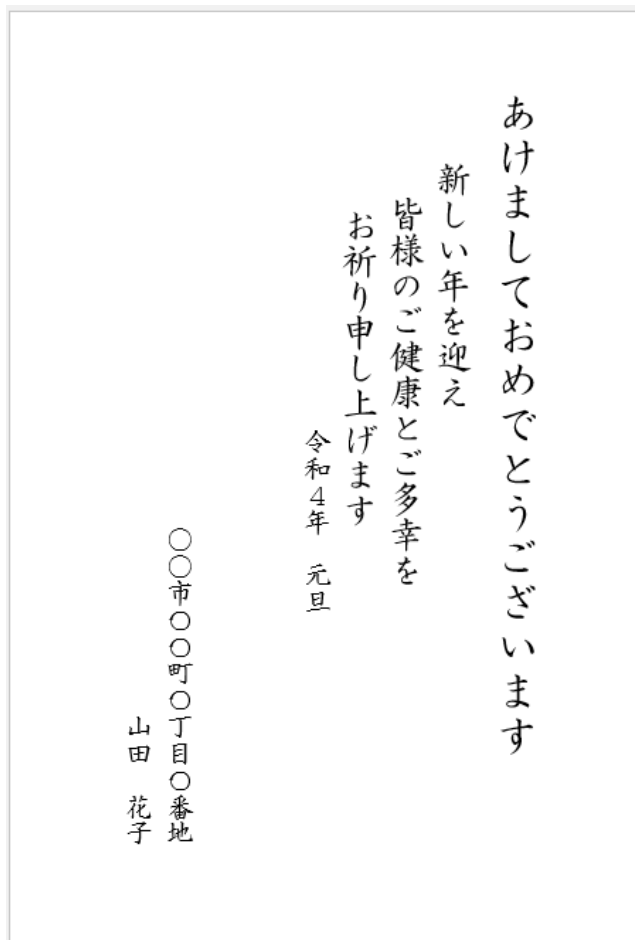 あけましておめでとうございます
新しい年を迎え
皆様のご健康とご多幸を
お祈り申し上げます
令和４年　元旦
〇〇市〇〇町〇丁目〇番地
山田　花子